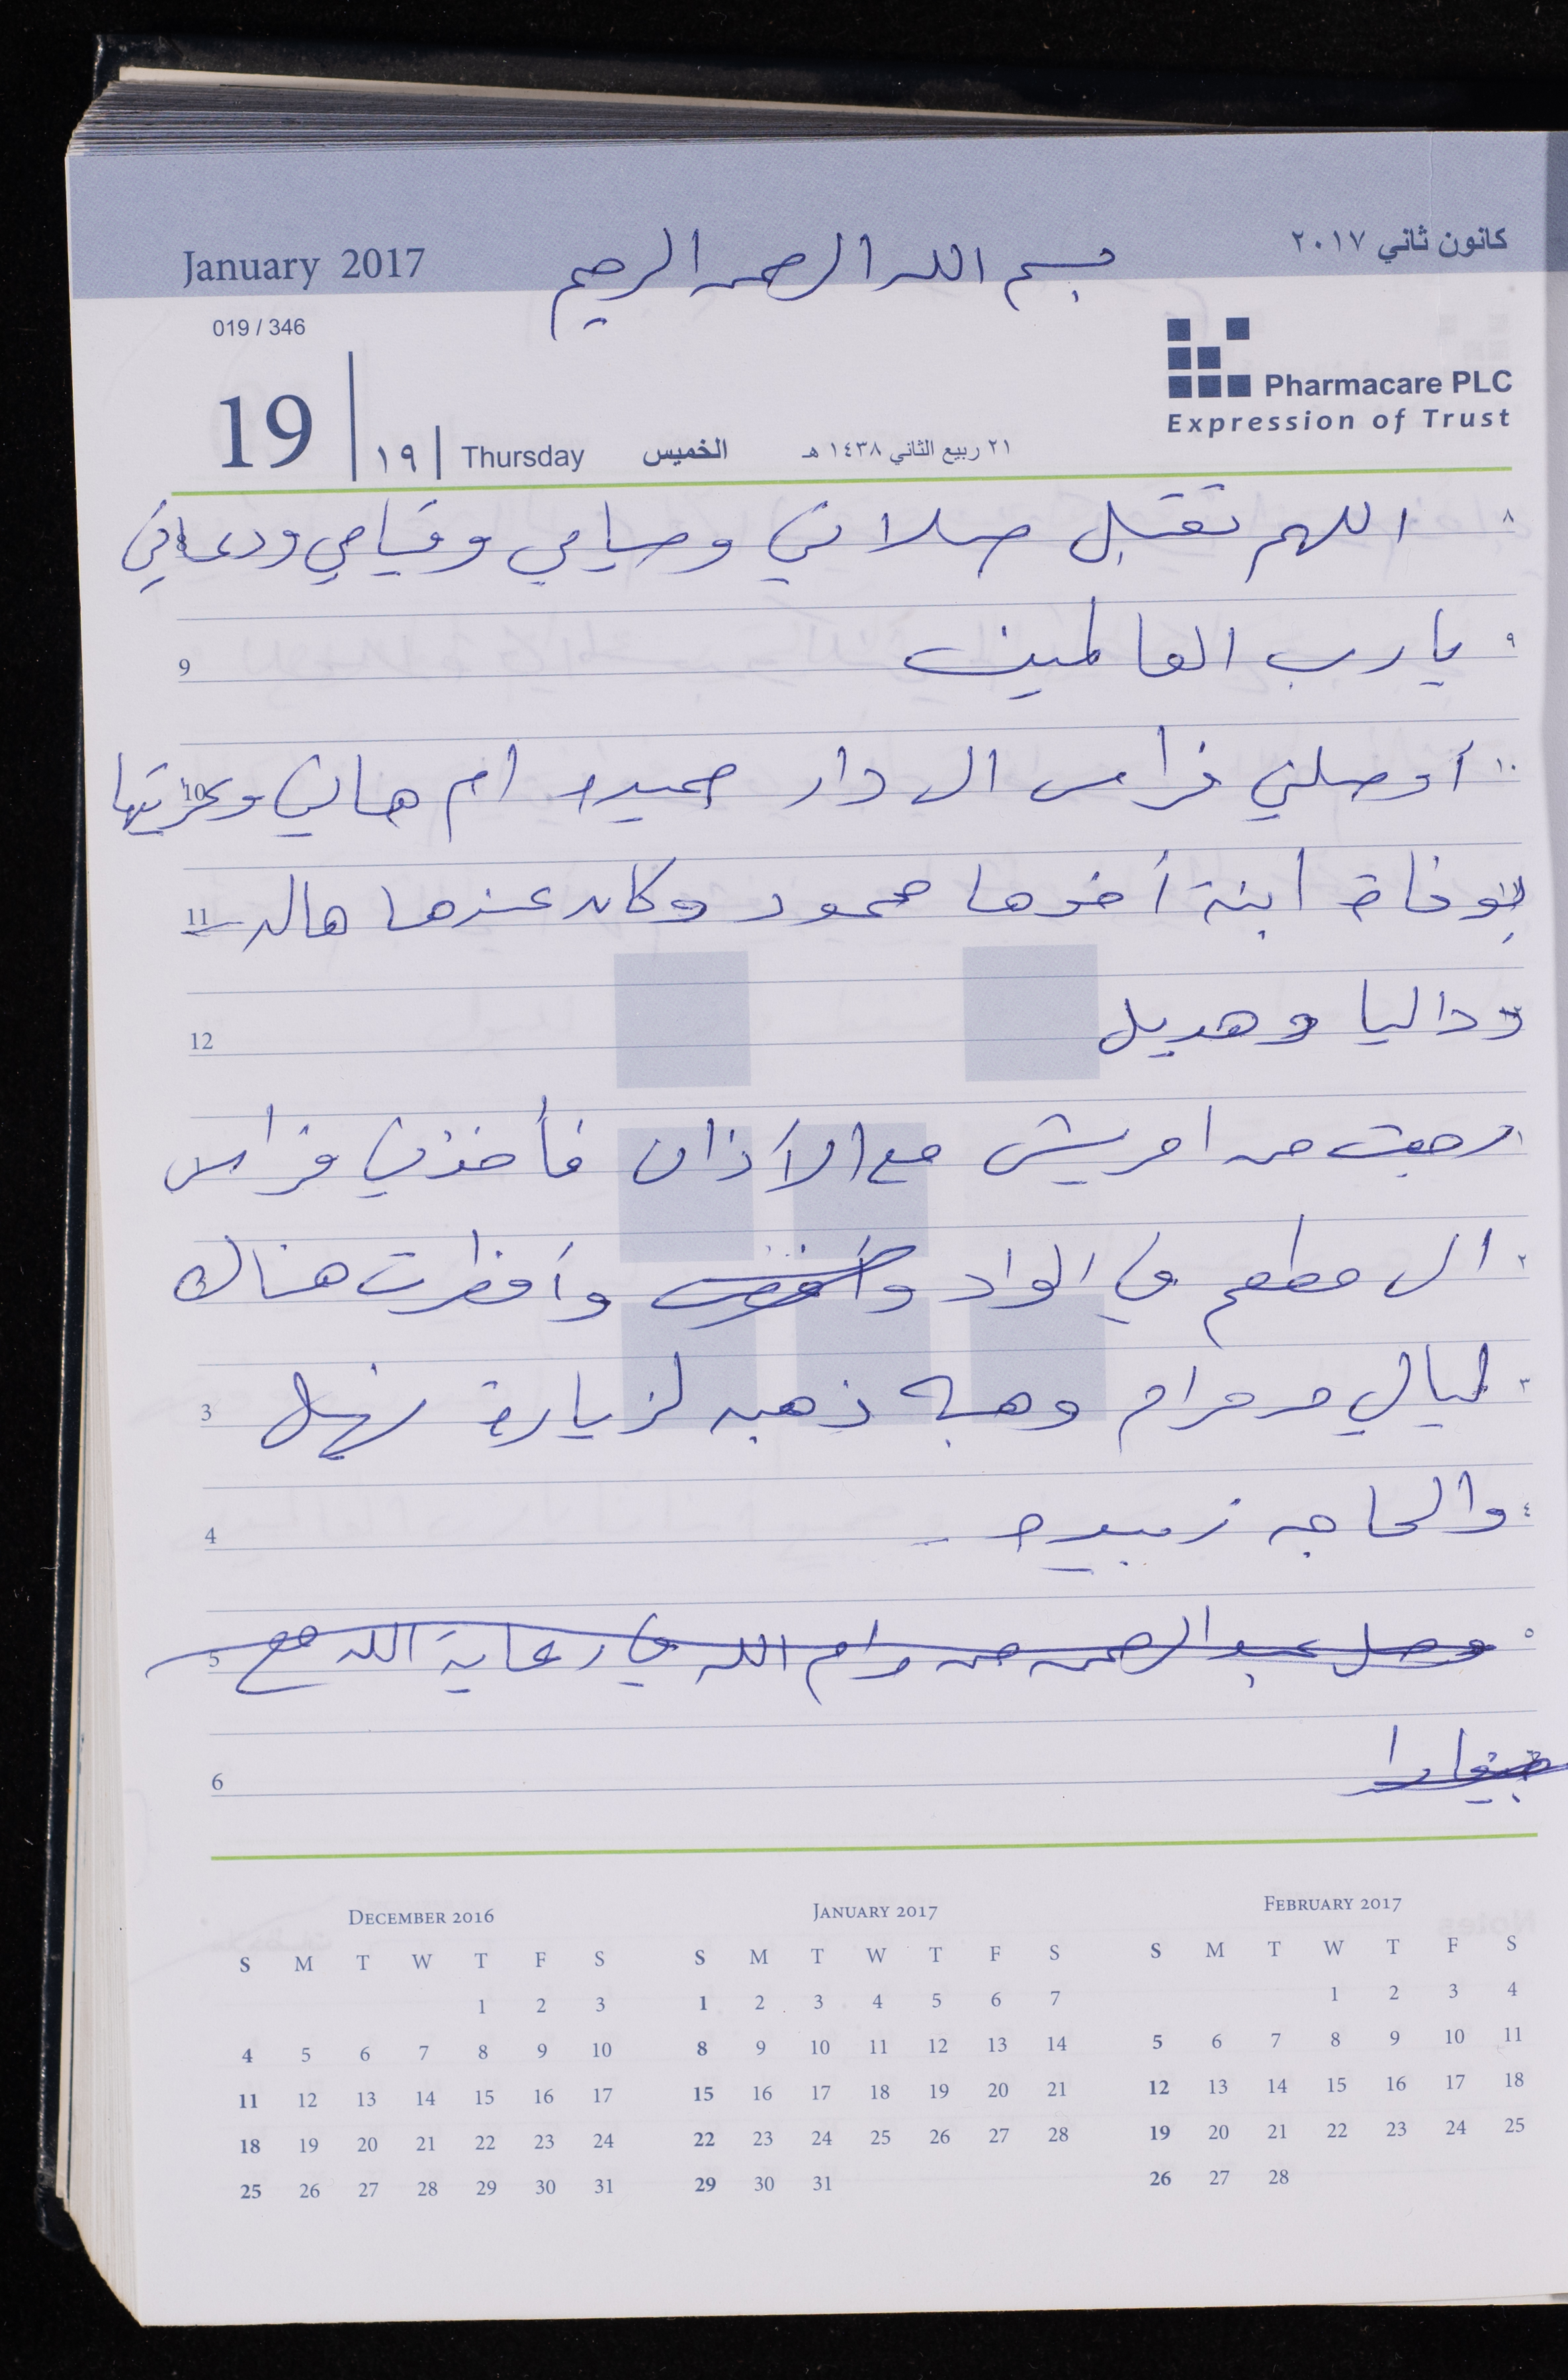 January 2017 بسم الله الرحمن الرحيم كانون ثاني ٢٠١٧
019 / 346
Pharmacare PLC
Expression of Trust
19 ١٩ Thursday الخميس ٢١ ربيع الثاني ١٤٣٨ هـ
٨ اللهم تقبل صلاتي وصيامي وقيامي ودعائي
٩ يا رب العالمين 9
١٠ أوصلني فراس الى دار حميده ام هاني وعزيتها 10
بوفاة ابنة أخوها محمود وكان عندها هاله 11
وداليا وهديل 12
١ رجعت من امريش مع الأذان فأخذني فراس
٢ الى مطعم في الواد وأفطرت هناك
٣ ليالي ومرام وهبه ذهبه لزيارة نهيل 3
٤ والحاجه زبيده 4
٥ وصل عبد الرحمن من رام الله في رعاية الله مع 5
6
December 2016
S M T W T F S
1 2 3
4 5 6 7 8 9 10
11 12 13 14 15 16 17
18 19 20 21 22 23 24
25 26 27 28 29 30 31
January 2017
S M T W T F S
1 2 3 4 5 6 7
8 9 10 11 12 13 14
15 16 17 18 19 20 21
22 23 24 25 26 27 28
29 30 31
February 2017
S M T W T F S
1 2 3 4
5 6 7 8 9 10 11
12 13 14 15 16 17 18
19 20 21 22 23 24 25
26 27 28